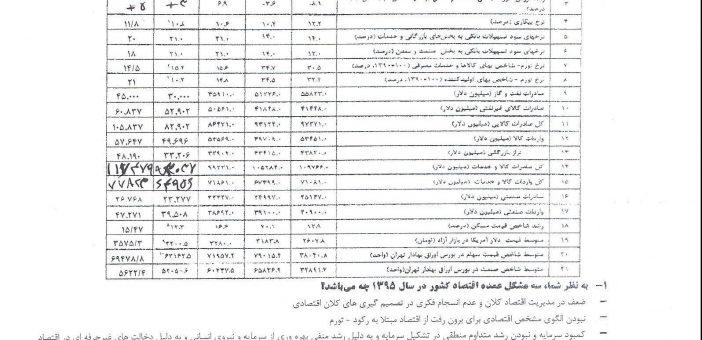 درصد)؟ ۸.۱- ۳.۶- ۶.۹
۴ نرخ بیکاری (درصد) ۱۲.۲ ۱۰.۴ ۱۰.۶ ۱۰.۸ ۱۱/۸
۵ نرخهای سود تسهیلات بانکی به بخش‌های بازرگانی و خدمات (درصد) ۱۴.۰ ۱۴.۰ ۲۱.۰ ۲۱.۰ ۲۰
۶ نرخهای سود تسهیلات بانکی به بخش صنعت و معدن (درصد) ۱۲.۰ ۱۴.۰ ۲۱.۰ ۲۱.۰ ۱۸
۷ نرخ تورم- شاخص بهای کالاها و خدمات مصرفی (۱۰۰=۱۳۹۰، درصد) ۳۰.۵ ۳۴.۷ ۱۵.۶ ۱۵.۴ ۱۴/۵
۸ نرخ تورم- شاخص بهای تولیدکننده (۱۰۰=۱۳۹۰، درصد) ۳۴.۵ ۱۴.۸ ۱۰.۲ ۲۱
۹ صادرات نفت و گاز (میلیون دلار) ۵۵۸۲۳.۰ ۵۱۲۷۶.۰ ۳۵۹۱۰.۰ ۳۰.۰۰۰ ۴۵.۰۰۰
۱۰ صادرات کالای غیرنفتی (میلیون دلار) ۴۱۴۴۸.۰ ۴۱۸۴۸.۰ ۵۰۵۶۱.۰ ۵۲.۹۰۲ ۶۰.۸۳۷
۱۱ کل صادرات کالایی (میلیون دلار) ۹۷۲۷۱.۰ ۹۳۱۲۴.۰ ۸۶۴۷۱.۰ ۸۲.۹۰۲ ۱۰۵.۸۳۷
۱۲ واردات کالا (میلیون دلار) ۵۳۴۵۱.۰ ۴۹۷۰۹.۰ ۵۳۵۶۹.۰ ۴۹.۶۹۶ ۵۷.۶۴۷
۱۳ تراز بازرگانی (میلیون دلار) ۴۳۸۲۰.۰ ۴۳۴۱۵.۰ ۳۲۹۰۲.۰ ۳۳.۲۰۶ ۴۸.۱۹۰
۱۴ کل صادرات کالا و خدمات (میلیون دلار) ۱۰۹۷۶۶.۰ ۱۰۵۲۸۴.۰ ۹۹۲۳۱.۰
۱۵ کل واردات کالا و خدمات (میلیون دلار) ۷۱۰۸۱.۰ ۶۷۴۹۹.۰ ۷۱۸۶۱.۰
۱۶ صادرات صنعتی (میلیون دلار) ۲۳.۲۷۷ ۲۶.۷۶۸
۱۷ واردات صنعتی (میلیون دلار) ۴۰۹۰۰.۰ ۳۹۱۰۰.۰ ۳۸۶۹۲.۰ ۳۹.۵۰۸ ۴۷.۲۷۱
۱۸ رشد شاخص قیمت مسکن (درصد) ۲۰.۱ ۱۶.۶ ۱۲.۳ ۱۵/۴۷
۱۹ متوسط قیمت دلار آمریکا در بازار آزاد (تومان) ۲۶۰۲.۸ ۳۱۸۳.۸ ۳۲۸۰.۰ ۳۴۰۰.۵ ۳۵۷۵/۳
۲۰ متوسط شاخص قیمت سهام در بورس اوراق بهادار تهران (واحد) ۳۸۰۴۰.۸ ۷۹۰۱۵.۲ ۷۱۹۵۷.۲ ۶۳۱۶۲.۵ ۶۹۴۷۸/۸
۲۱ متوسط شاخص صنعت در بورس اوراق بهادار تهران (واحد) ۳۲۸۹۱.۷ ۶۵۸۲۶.۹ ۶۰۲۳۷.۵ ۵۲۰۵۰.۶ ۵۶۲۲/۴
۱- به نظر شما، سه مشکل عمده اقتصاد کشور در سال ۱۳۹۵ چه می‌باشد؟
- ضعف در مدیریت اقتصاد کلان و عدم انسجام فکری در تصمیم گیری های کلان اقتصادی
- نبودن الگوی مشخص اقتصادی برای برون رفت از اقتصاد مبتلا به رکود - تورم
- کمبود سرمایه و نبودن رشد متداوم منطقی در تشکیل سرمایه و به دلیل رشد منفی بهره وری از سرمایه و نیروی انسانی و به دلیل دخالت های غیرحرفه ای در اقتصاد